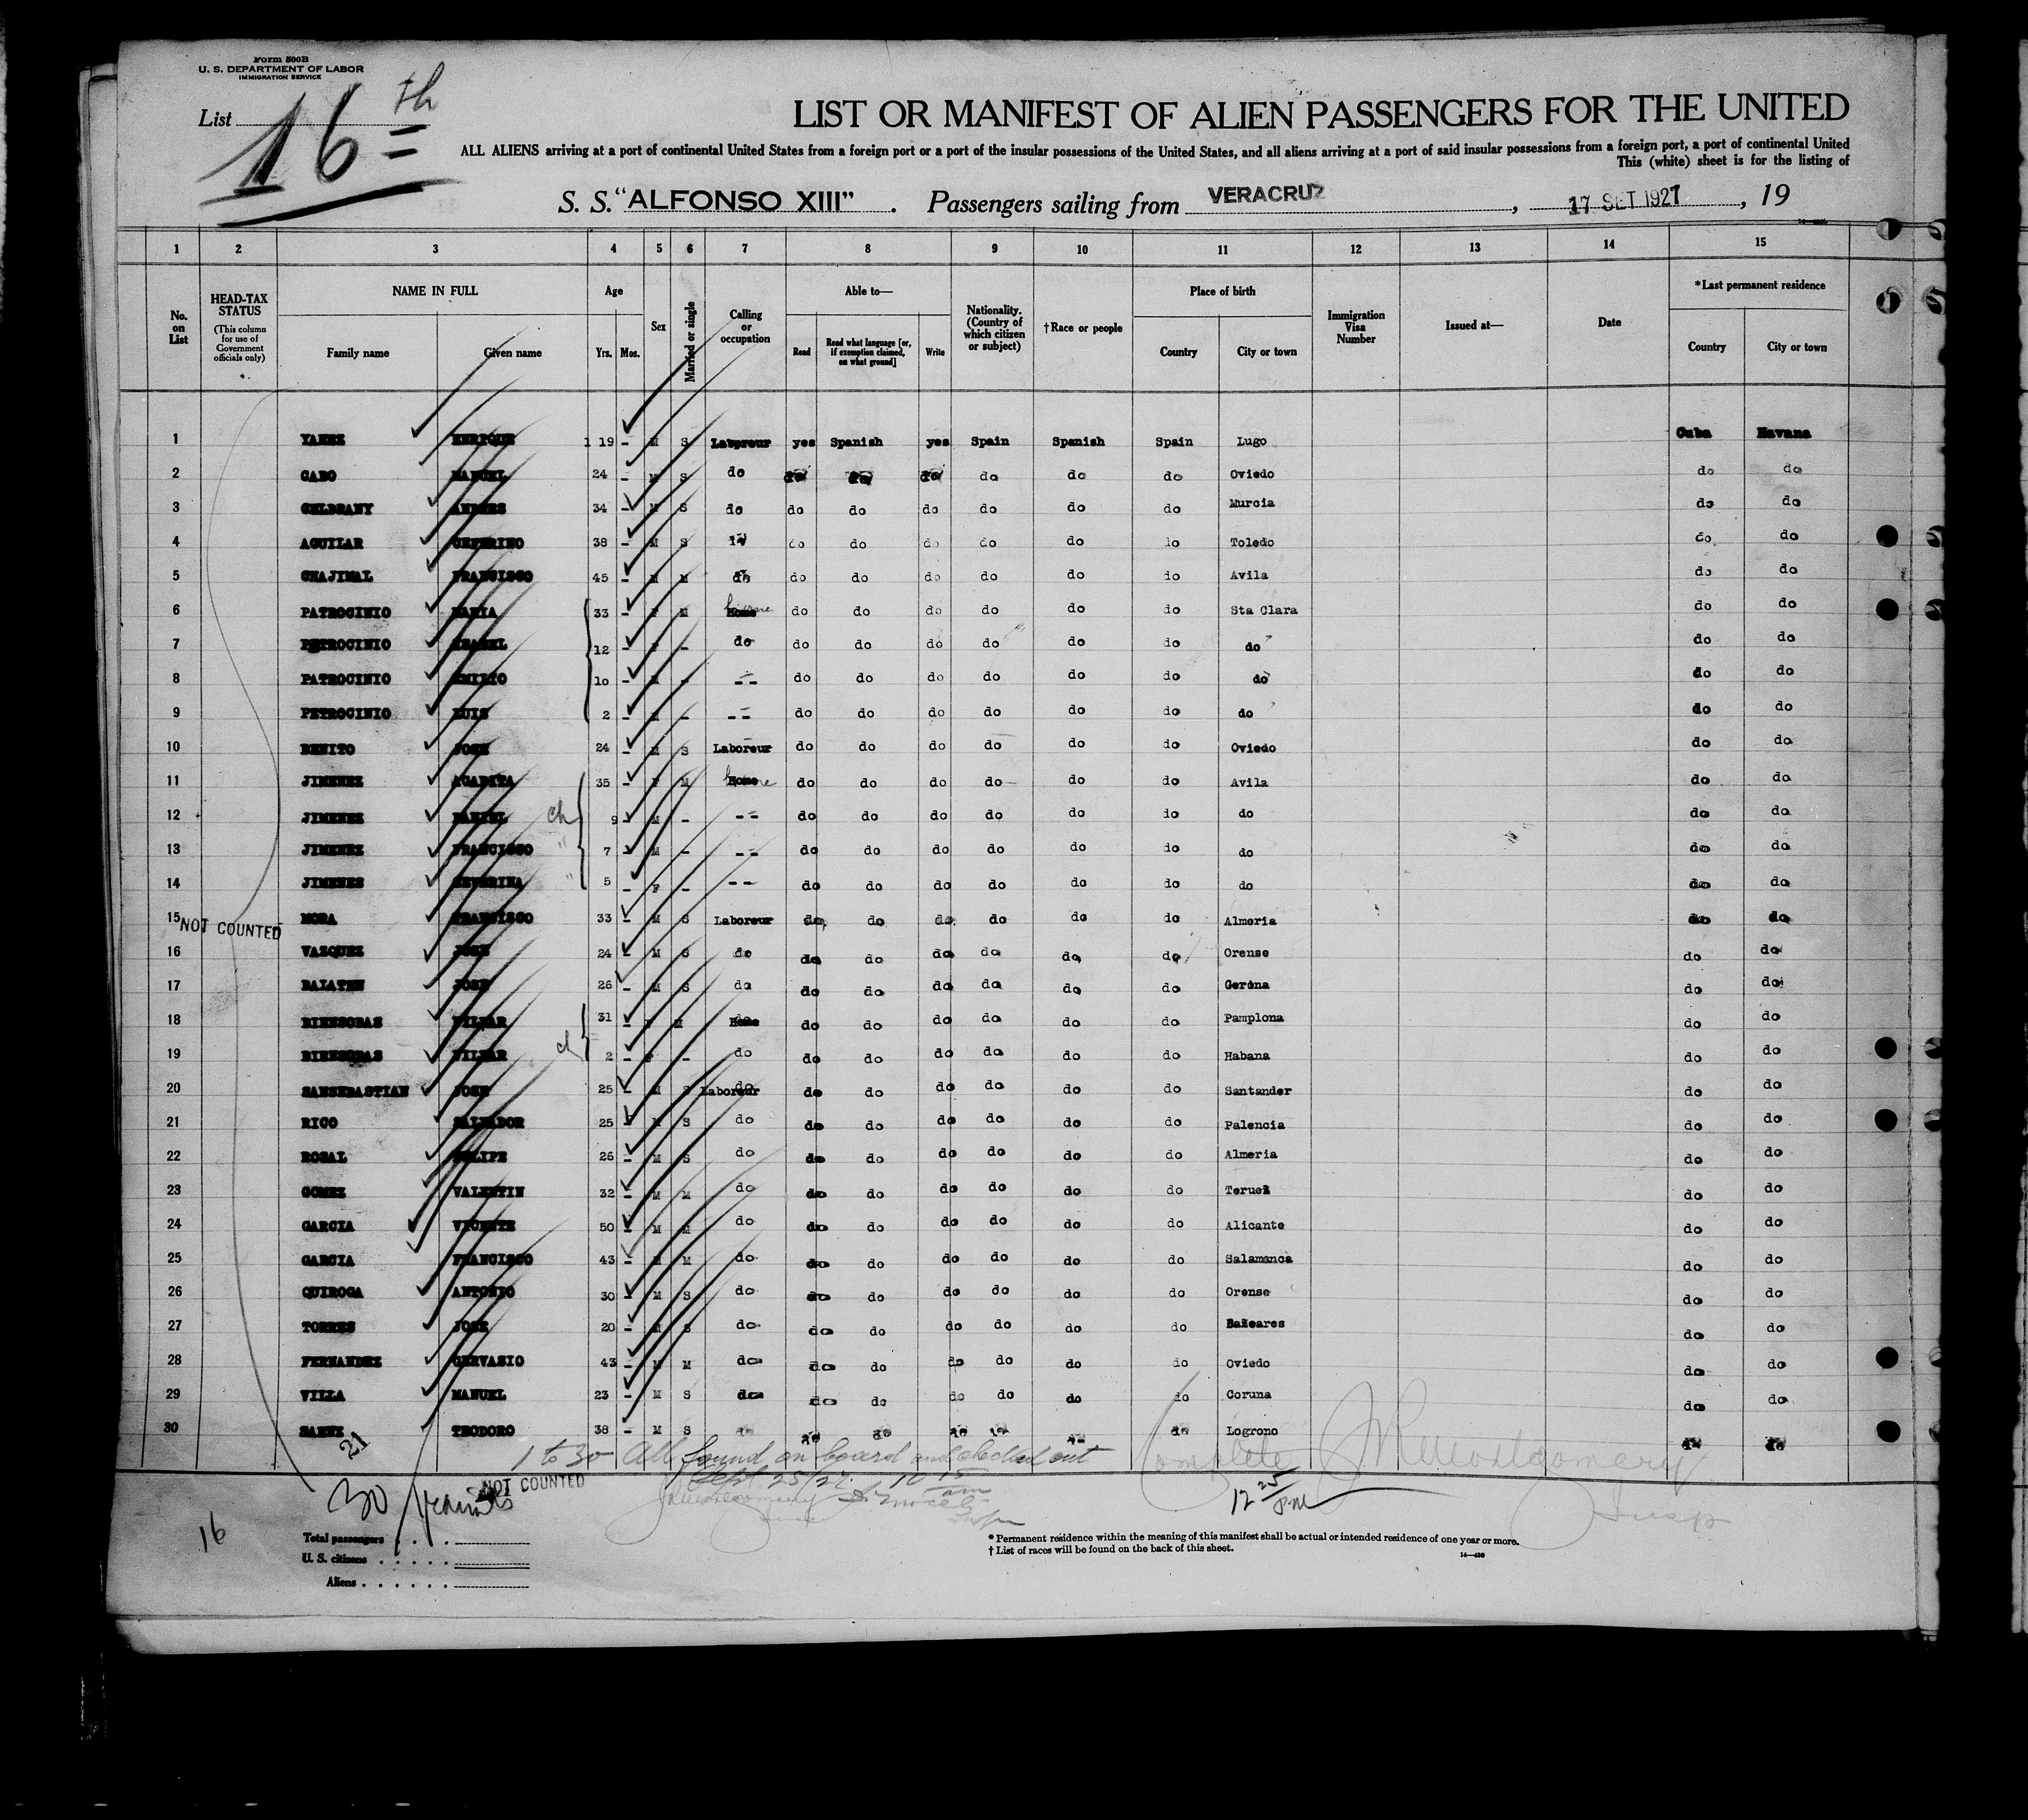 Form 500B
U. S. DEPARTMENT OF LABOR
IMMIGRATION SERVICE
List 16th
LIST OR MANIFEST OF ALIEN PASSENGERS FOR THE UNITED
ALL ALIENS arriving at a port of continental United States from a foreign port or a port of the insular possessions of the United States, and all aliens arriving at a port of said insular possessions from a foreign port, a port of continental United
This (white) sheet is for the listing of
S. S. "ALFONSO XIII" . Passengers sailing from VERACRUZ , 17 SET 1927 , 19
1 2 3 4 5 6 7 8 9 10 11 12 13 14 15
No. on List
HEAD-TAX STATUS (This column for use of Government officials only)
NAME IN FULL
Family name Given name
Age
Yrs. Mos.
Sex
Married or single
Calling or occupation
Able to—
Read Read what language [or, if exemption claimed, on what ground] Write
Nationality. (Country of which citizen or subject)
†Race or people
Place of birth
Country City or town
Immigration Visa Number
Issued at—
Date
*Last permanent residence
Country City or town
1 YANEZ ENRIQUE 19 - M S Laboreur yes Spanish yes Spain Spanish Spain Lugo Cuba Havana
2 CABO MANUEL 24 - M S do do do do do do do Oviedo do do
3 GELBRANY ANDRES 34 - M S do do do do do do do Murcia do do
4 AGUILAR CEFERINO 38 - M S do do do do do do Toledo do do
5 FRANCISCO 45 - M M do do do do do do do Avila do do
6 PATROCINIO MARIA 33 - F M Home do do do do do do Sta Clara do do
7 PETROCINIO ISABEL 12 - F - do do do do do do do do do do
8 PATROCINIO EMILIO 10 - M - -- do do do do do do do do do
9 PETROCINIO LUIS 2 - M - -- do do do do do do do do do
10 BENITO JOSE 24 - M S Laboreur do do do do do do Oviedo do do
11 JIMENEZ AGADITA 35 - F M Home do do do do do do Avila do do
12 JIMENEZ DANIEL 9 - M - -- do do do do do do do do do
13 JIMENEZ FRANCISCO 7 - M - -- do do do do do do do do do
14 JIMENES SEVERINA 5 - F - -- do do do do do do do do do
15 MORA FRANCISCO 33 - M S Laboreur do do do do do do Almeria do do
NOT COUNTED
16 VAZQUEZ JOSE 24 - M S do do do do do do do Orense do do
17 BALATEU JOSE 26 - M S do do do do do do do Gerona do do
18 BIENSOBAS PILAR 31 - F M Home do do do do do do Pamplona do do
19 BIENSOBAS PILAR 2 - F - do do do do do do do Habana do do
20 SANSEBASTIAN JOSE 25 - M S Laboreur do do do do do do Santander do do
21 RICO SALVADOR 25 - M S do do do do do do do Palencia do do
22 ROSAL FELIPE 26 - M S do do do do do do do Almeria do do
23 GOMEZ VALENTIN 32 - M M do do do do do do do Teruel do do
24 GARCIA VICENTE 50 - M M do do do do do do do Alicante do do
25 GARCIA FRANCISCO 43 - M M do do do do do do do Salamanca do do
26 QUIROGA ANTONIO 30 - M S do do do do do do do Orense do do
27 TORRES JOSE 20 - M S do do do do do do do Baleares do do
28 FERNANDEZ GERVASIO 43 - M M do do do do do do do Oviedo do do
29 VILLA MANUEL 23 - M S do do do do do do do Coruna do do
30 SAENZ TEODORO 38 - M S do do do do do do do Logrono do do
21
1 to 30 All found on board and checked out
Sept 25/27. 10 15 am
Complete JRMontgomery
12 25 PM
Insp
30 Transits
NOT COUNTED
16
Total passengers
U. S. citizens
Aliens
* Permanent residence within the meaning of this manifest shall be actual or intended residence of one year or more.
† List of races will be found on the back of this sheet.